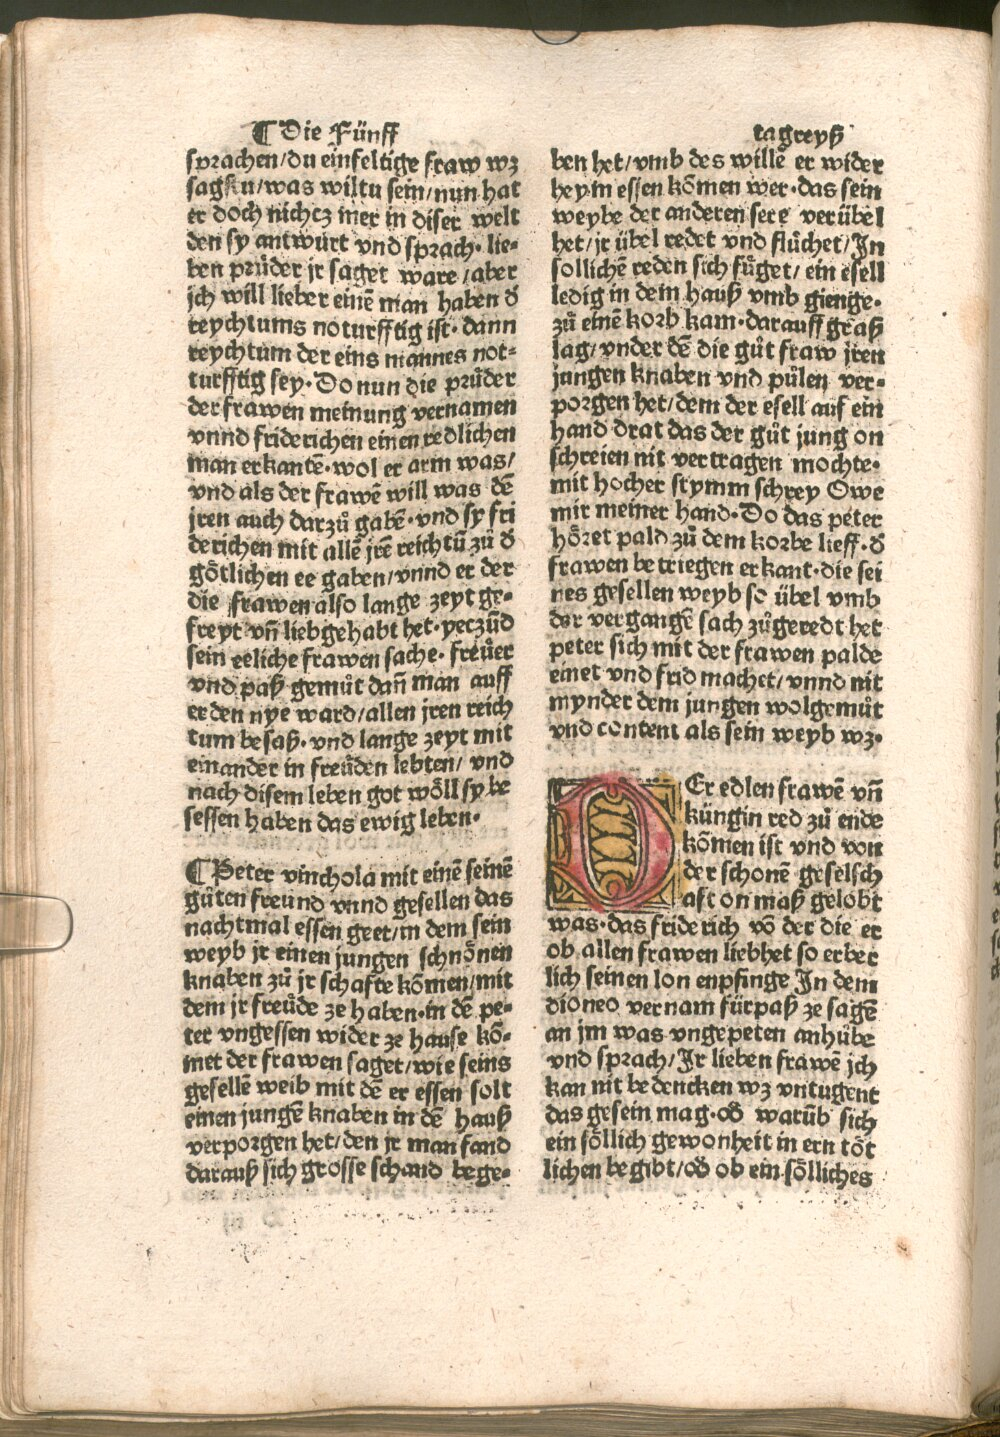 ¶ Die Fünff
sprachen/du einfeltige fraw wꝫ
sagstu/was wiltu sein/nun hat
er doch nichcz mer in diser welt
den sy antwurt vnd sprach· lie-
ben průder jr saget ware/aber
jch will lieber einē man haben ð
reychtums noturfftig ist· dann
reychtum der eins mannes not-
turfftig sey· Do nun die průder
der frawen meinung vernamen
vnnd friderichen einen redlichen
man erkantē· wol er arm was/
vnd als der frawē will was dē
jren auch darzů gabē· vnd sy fri
derichen mit allē jrē reichtū zů ð
götlichen ee gaben/vnnd er der
die frawen also lange zeyt ge-
freyt vn̄ liebgehabt het· yeczūd
sein eeliche frawen sache· freüer
vnd paß gemůt dan̄ man auff
erden nye ward/allen jren reich
tum besaß· vnd lange zeyt mit
einander in freüden lebten/ vnd
nach disem leben got wöll sy be
sessen haben das ewig leben·
¶ Peter vinchola mit einē seinē
guten freund vnnd gesellen das
nachtmal essen geet/in dem sein
weyb jr einen jungen schnönen
knaben zů jr schafte kōmen/mit
dem jr freüde ze haben· in dē pe-
ter vngessen wider ze hause kō-
met der frawen saget/wie seins
gesellē weib mit dē er essen solt
einen jungē knaben in dē hauß
verporgen het/den jr man fand
darauß sich grosse schand bege-
tagreyß
ben het/vmb des willē er wider
heym essen kōmen wer· das sein
weybe der anderen sere verübel
het/jr übel redet vnd flůchet/In
sollichē reden sich fůget/ ein esell
ledig in dem hauß vmb gienge·
zů einē korb kam· darauff graß
lag/vnder dē die gůt fraw jren
jungen knaben vnd půlen ver-
porgen het/dem der esell auf ein
hand drat das der gůt jung on
schreien nit vertragen mochte·
mit hocher stymm schrey Owe
mir meiner hand· Do das peter
höret pald zů dem korbe lieff· ð
frawen betriegen erkant· die sei
nes gesellen weyb so übel vmb
der vergangē sach zůgeredt het
peter sich mit der frawen palde
einet vnd frid machet/vnnd nit
mynder dem jungen wolgemůt
vnd content als sein weyb wꝫ·
DEr edlen frawē vn̄
küngin red zů ende
kōmen ist vnd von
der schonē geselsch
aft on maß gelobt
was· das friderich vō der die er
ob allen frawen liebhet so erber
lich seinen lon enpfinge In dem
dioneo vernam fürpaß ze sagē
an jm was vngepeten anhůbe
vnd sprach/Ir lieben frawē jch
kan nit bedencken wꝫ vntugent
das gesein mag· oð warūb sich
ein söllich gewonheit in ern töt
lichen begibt/oð ob ein sölliches